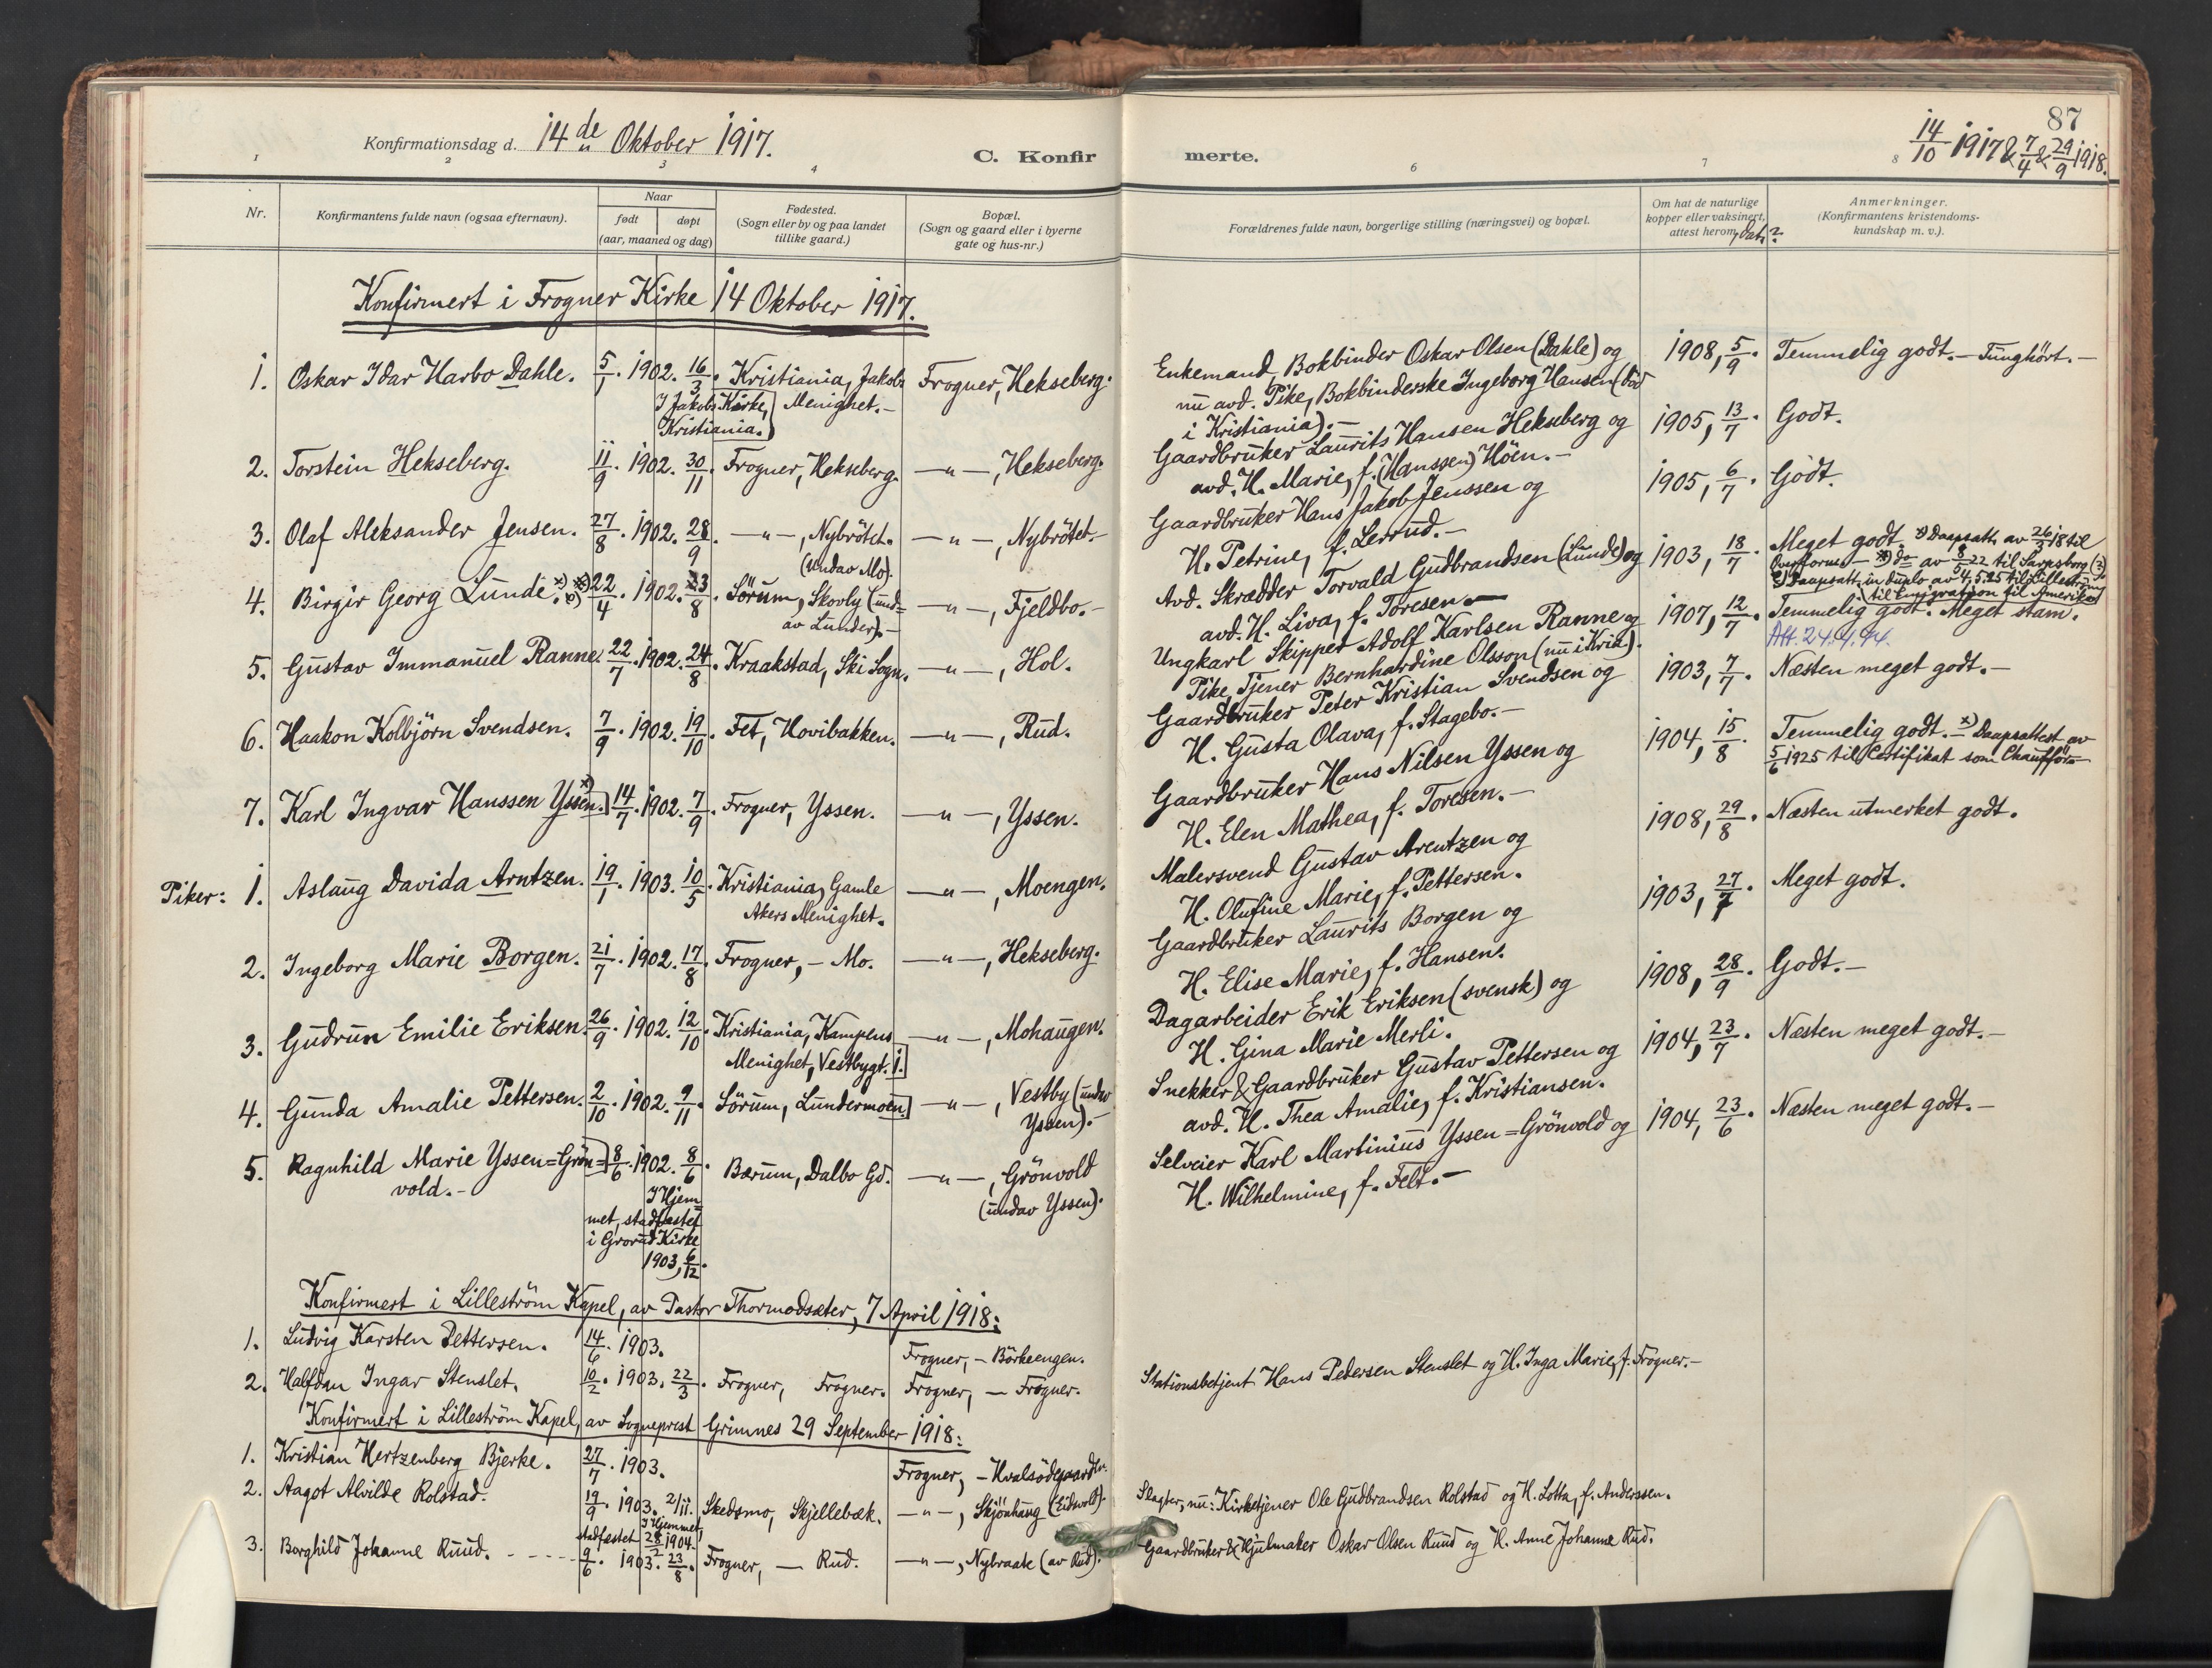 Konfirmationsdag d. 14de Oktober 1917.
C. Konfirmerte.
87
14/10 1917 & 7/4 & 29/9 1918.
1 2 3 4 6 7 8
Nr.
Konfirmantens fulde navn (ogsaa efternavn).
Naar
født
døpt
(aar, maaned og dag)
Fødested.
(Sogn eller by og paa landet
tillike gaard.)
Bopæl.
(Sogn og gaard eller i byerne
gate og hus-nr.)
Forældrenes fulde navn, borgerlige stilling (næringsvei) og bopæl.
Om hat de naturlige
kopper eller vaksinert,
attest herom, dat. ?
Anmerkninger.
(Konfirmantens kristendoms-
kundskap m. v.).
Konfirmert i Frogner Kirke 14 Oktober 1917.
1. Oskar Idar Harbo Dahle. 5/1. 1902. 16/3. Kristiania, Jakobs Frogner, Hekseberg.
I Jakobs Kirke, Menighet.-
Kristiania.)
Enkemand, Bokbinder Oskar Olsen (Dahle) og
nu avd. Pike, Bokbinderske Ingeborg Hansen (död
i Kristiania).-
1908, 5/9. Temmelig godt.- Tunghört.-
2. Torstein Hekseberg. 11/9. 1902. 30/11. Frogner, Hekseberg. -"-, Hekseberg.
Gaardbruker Laurits Hansen Hekseberg og
avd. H. Marie, f. (Hanssen) Höen.-
1905, 13/7. Godt.
3. Olaf Aleksander Jensen. 27/8. 1902. 28/9. -"-, Nybrötet. -"-, Nybrötet.-
(undav Mo).
Gaardbruker Hans Jakob Jenssen og
H. Petrine, f. Lerrud.-
1905, 6/7. Godt.
4. Birgir Georg Lunde. x) xx) 22/4. 1902. 23/8. Sörum, Skovly (und= -"-, Fjeldbo.-
av Lunder).-
Avd. Skrædder Torvald Gudbrandsen (Lunde) og
avd. H. Liva, f. Toresen.-
1903, 18/7. Meget godt. x) Daapsatt. av 26/3 18 til
- xx) do av 8/5 22 til Sarpsborg
Daapsatt. in duplo av 4.5.25 til Lilleström
(til Emigration til Amerika)
5. Gustav Immanuel Ranne. 22/7. 1902. 24/8. Kraakstad, Ski Sogn. -"-, Hol.
Ungkarl Skipper Adolf Karlsen Ranne og
Pike, Tjener Bernhardine Olsson (nu i Kria).
1907, 12/7. Temmelig godt. Meget stam.
Att. 24.4.44.
6. Haakon Kolbjörn Svendsen. 7/9. 1902. 19/10. Fet, Hovibakken. -"-, Rud.
Gaardbruker Peter Kristian Svendsen og
H. Gusta Olava, f. Stagebo.-
1903, 7/7. Næsten meget godt.-
7. Karl Ingvar Hanssen Yssen. x) 14/7. 1902. 7/9. Frogner, Yssen. -"-, Yssen.
Gaardbruker Hans Nilsen Yssen og
H. Elen Mathea, f. Toresen.-
1904, 15/8. Temmelig godt.- x) Daapsattest av
5/6 1925 til Certifikat som Chaufför.-
Piker: 1. Aslaug Davida Arntzen. 19/1. 1903. 10/5. Kristiania, Gamle -"-, Moengen.
Akers Menighet.
Malersvend Gustav Arentzen og
H. Olufine Marie, f. Pettersen.
1908, 29/8. Næsten utmerket godt.
2. Ingeborg Marie Borgen. 21/7. 1902. 17/8. Frogner, - Mo. -"-, Hekseberg.
Gaardbruker Laurits Borgen og
H. Elise Marie, f. Hansen.
1903, 27/7. Meget godt.
3. Gudrun Emilie Eriksen. 26/9. 1902. 12/10. Kristiania, Kampens -"-, Mohaugen.
Menighet, Vestbygt. 1.
Dagarbeider Erik Eriksen (svensk) og
H. Gina Marie Merli.
1908, 28/9. Godt.-
4. Gunda Amalie Pettersen. 2/10. 1902. 9/11. Sörum, Lundermoen. -"-, Vestby (undav
Yssen).-
Snekker & Gaardbruker Gustav Pettersen og
avd. H. Thea Amalie, f. Kristiansen.
1904, 23/7. Næsten meget godt.-
5. Ragnhild Marie Yssen=Grön= 8/6. 1902. 8/6. Bærum, Dalbo Gd. -"-, Grönvold
vold.- (undav Yssen).
I Hjem=
met, stadfæstet
i Grorud Kirke
1903, 6/12.
Selveier Karl Martinius Yssen=Grönvold og
H. Wilhelmine, f. Felt.-
1904, 23/6. Næsten meget godt.-
Konfirmert i Lilleström Kapel, av Pastor Thormodsæter, 7 April 1918:
1. Ludvig Karsten Pettersen. 14/6. 1903. Frogner, - Börkeengen.
2. Halfdan Ingar Stenslet. 10/2. 1903. 22/3. Frogner, Frogner. Frogner, - Frogner.
Stationsbetjent Hans Pedersen Stenslet og H. Inga Marie, f. Frogner.-
Konfirmert i Lilleström Kapel, av Sogneprest Grimnes 29 September 1918:
1. Kristian Hertzenberg Bjerke. 27/7. 1903. Frogner, - Hvalsödegaarden.
2. Aagot Alvilde Rolstad. 19/9. 1903. 2/11. Skedsmo, Skjellebæk. -"-, Skjönhaug (Eidsvold).
I Hjemmet,
stadfæstet 28/2 1904.
Slagter, nu: Kirketjener Ole Gudbrandsen Rolstad og H. Lotta, f. Anderssen.
3. Borghild Johanne Ruud. - - - - 9/6. 1903. 23/8. Frogner, - Rud. -"-, Nybraate (av Rud).
Gaardbruker & Hjulmaker Oskar Olsen Ruud og H. Anne Johanne Rud.